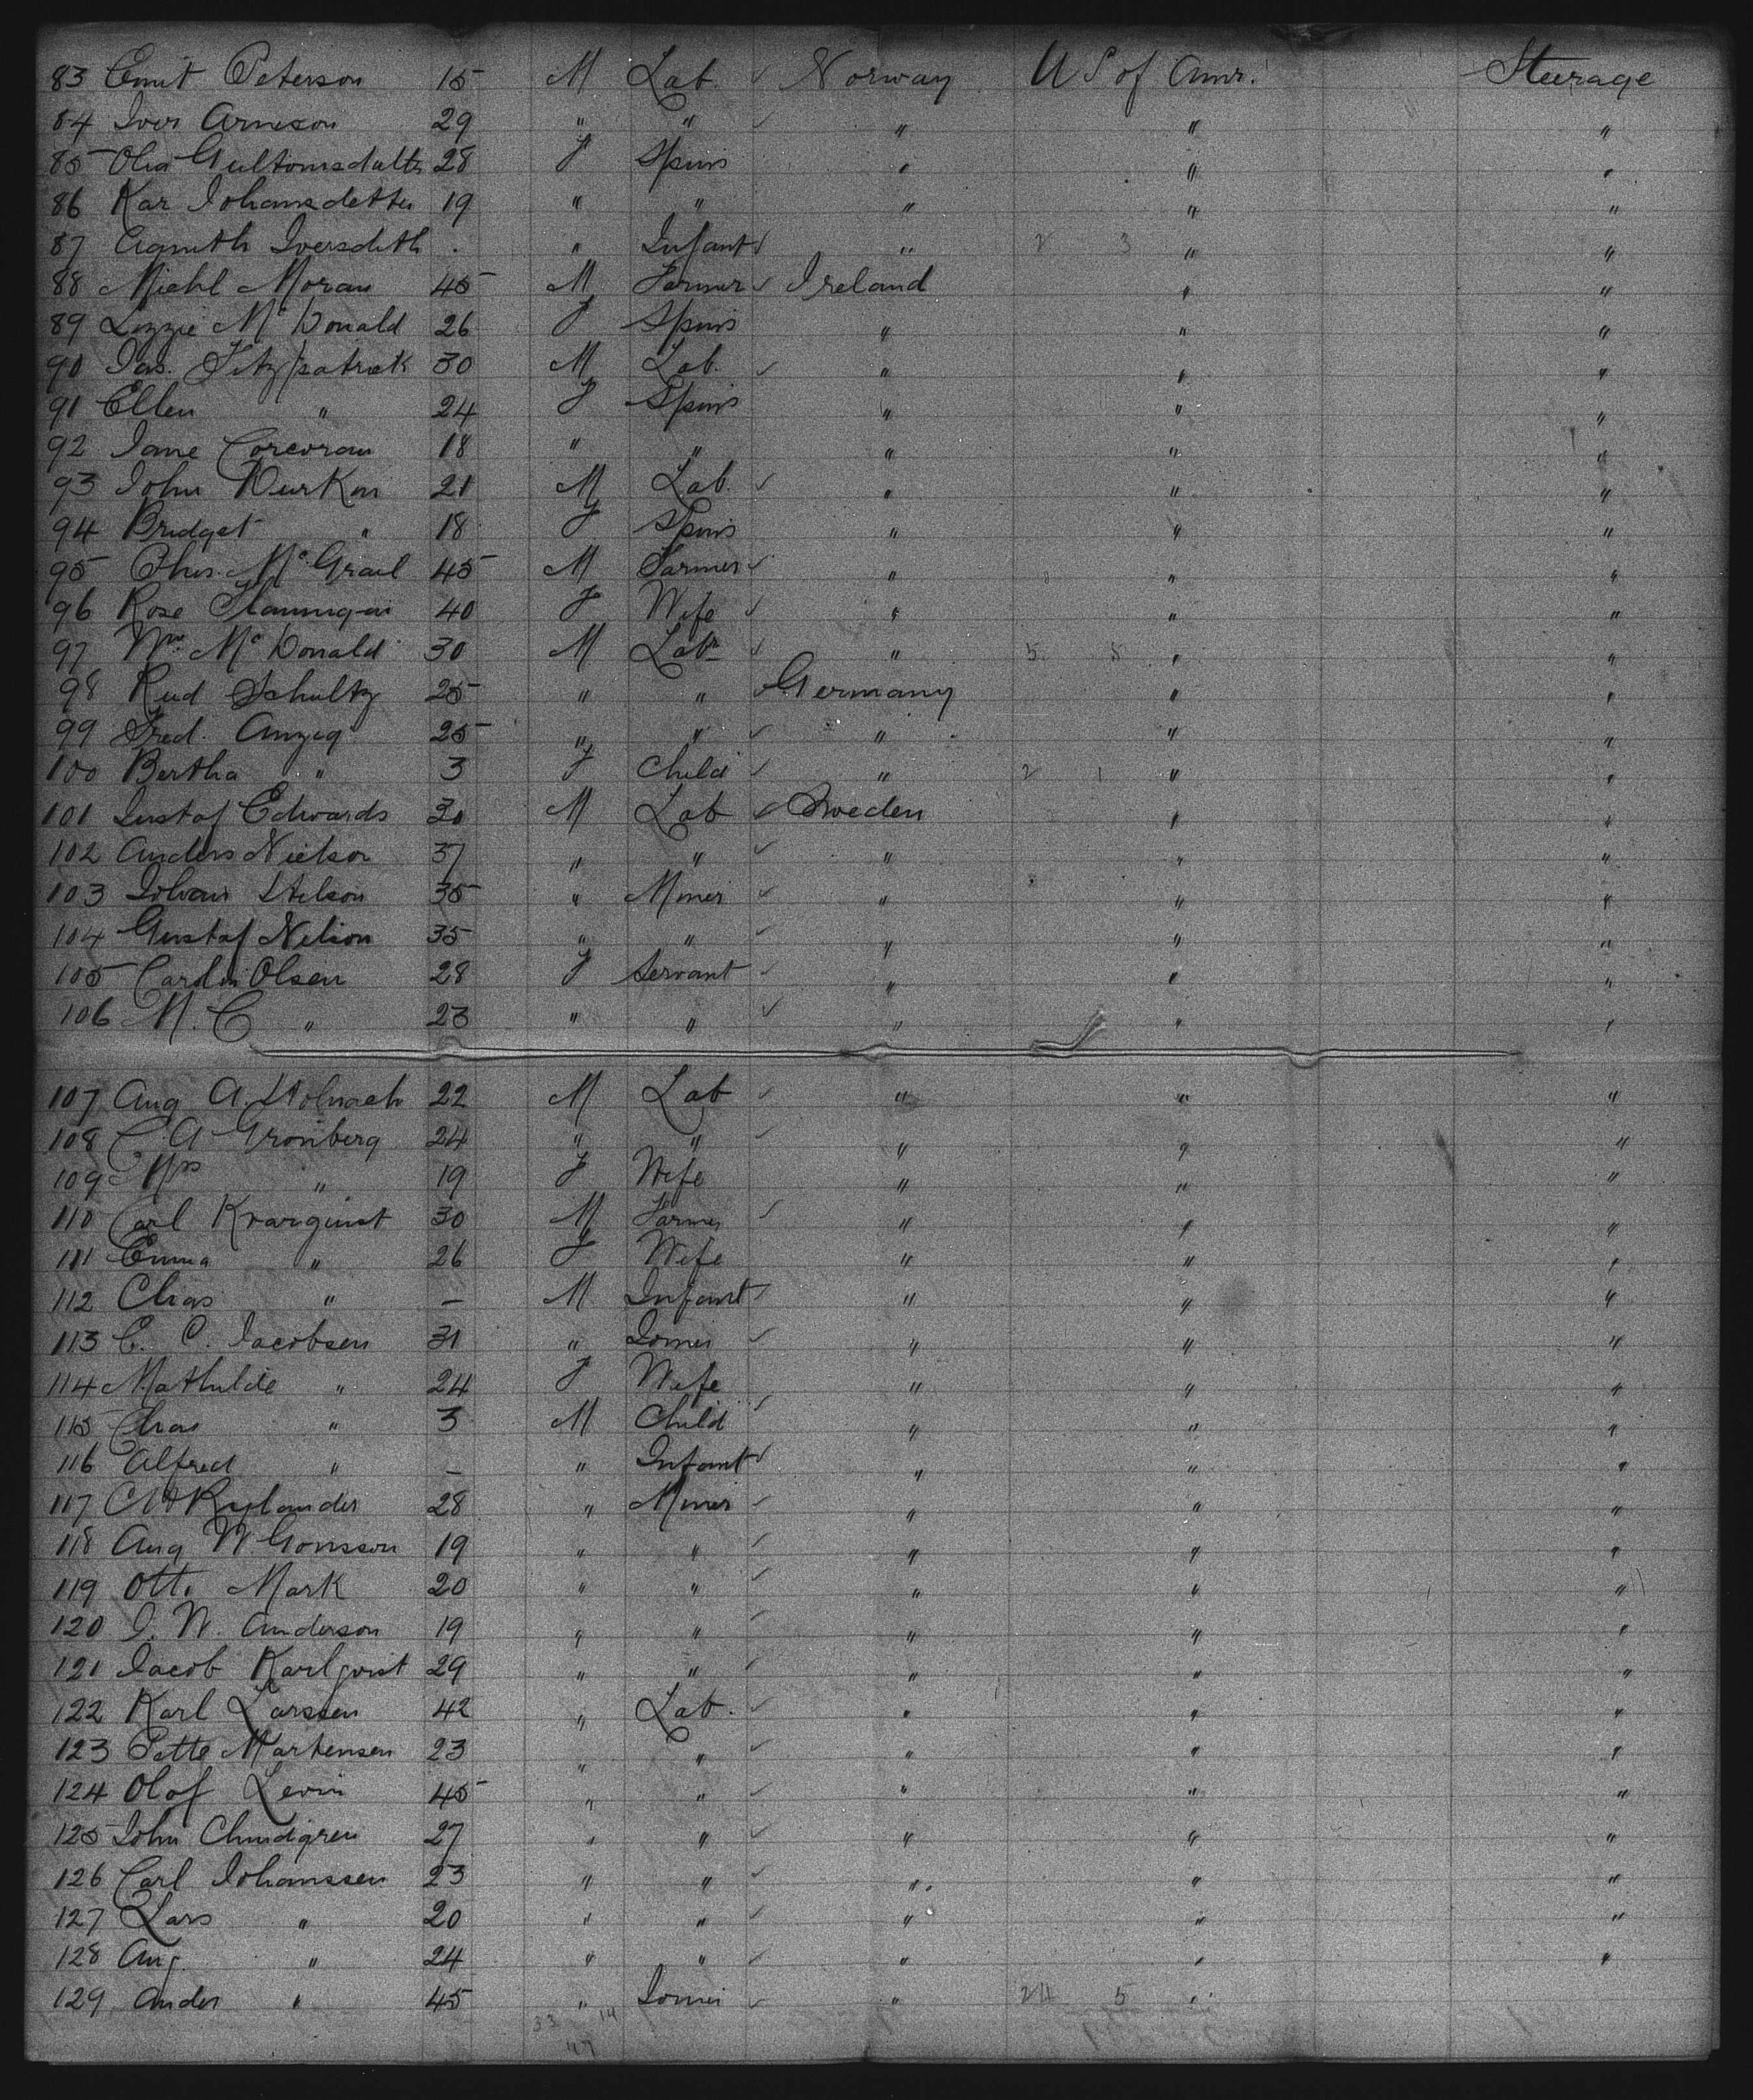 83 Emil Peterson 15 M Lab. ✓ Norway U S of Amr. Steerage
84 Iver Arneson 29 " " ✓ " " "
85 Olia Gultomsdatter 28 F Spins " " "
86 Kar Johansdetter 19 " " " " "
87 Agnith Iversdtth . " Infant ✓ " 2 3 " "
88 Michl Moran 45 M Farmer ✓ Ireland " "
89 Lizzie McDonald 26 F Spins " " "
90 Jas. Fitzpatrick 30 M Lab. ✓ " " "
91 Ellen " 24 F Spins " " "
92 Jane Corcoran 18 " " " " "
93 John Durkin 21 M Lab. ✓ " " "
94 Bridget " 18 F Spins " " "
95 Thos. McGrail 45 M Farmer ✓ " " "
96 Rose Flannigan 40 F Wife ✓ " " "
97 Wm. McDonald 30 M Labr ✓ " 5 8 " "
98 Rud Schultz 25 " " ✓ Germany " "
99 Fred. Anzig 25 " " ✓ " " "
100 Bertha " 3 F Child ✓ " 2 1 " "
101 Gustaf Edwards 30 M Lab ✓ Sweden " "
102 Anders Nielson 37 " " ✓ " " "
103 Johan 35 " Miner ✓ " " "
104 Gustaf Nelson 35 " " ✓ " " "
105 Carolin Olsen 28 F Servant ✓ " " "
106 M. C " 23 " " ✓ " " "
107 Aug A. 22 M Lab ✓ " " "
108 C. A Gronberg 24 " " ✓ " " "
109 Mrs " 19 F Wife " " "
110 Carl Kvarquist 30 M Farmer ✓ " " "
111 Emma " 26 F Wife " " "
112 Chas " – M Infant ✓ " " "
113 C. C. Jacobsen 31 " Joiner ✓ " " "
114 Mathilde " 24 F Wife " " "
115 Chas " 3 M Child ✓ " " "
116 Alfred " – " Infant ✓ " " "
117 Rylander 28 " Miner ✓ " " "
118 Aug W. Gonsson 19 " " ✓ " " "
119 Otto Mark 20 " " ✓ " " "
120 J. W. Anderson 19 " " ✓ " " "
121 Jacob Karlqvist 29 " " ✓ " " "
122 Karl Larssen 42 " Lab. ✓ " " "
123 Pette Martensen 23 " " ✓ " " "
124 Olof Levin 45 " " ✓ " " "
125 John Chindgren 27 " " ✓ " " "
126 Carl Johanssen 23 " " ✓ " " "
127 Lars " 20 " " ✓ " " "
128 Aug. " 24 " " ✓ " " "
129 Ander " 45 " Joiner ✓ " 24 5 "
33 14
47